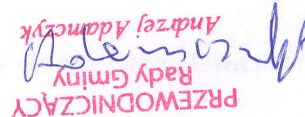 PRZEWODNICZĄCY
Rady Gminy
Andrzej Adamczyk